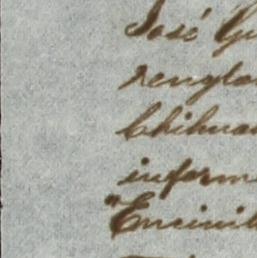 José Gu
renglo
Chihua
inform
"Encinil